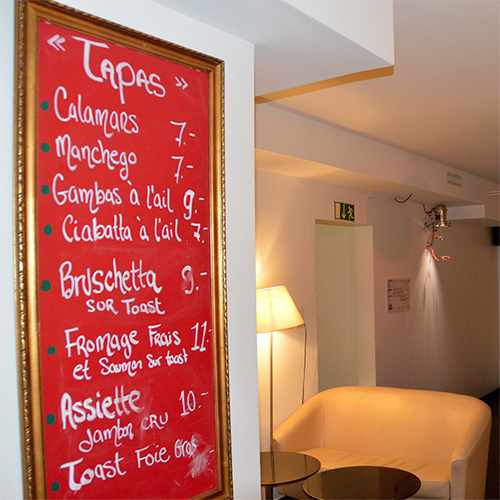 « Tapas »
Calamars 7.-
Manchego 7.-
Gambas à l'ail 9.-
Ciabatta à l'ail 7.-
Bruschetta 9.-
sur Toast
Fromage Frais 11.-
et Saumon sur toast
Assiette 10.-
Jambon CRU
Toast Foie Gras